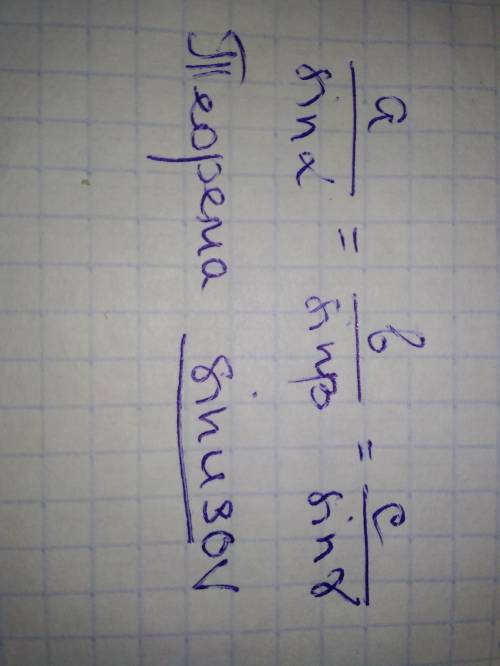 a/sinα = b/sinβ = c/sinγ
Теорема sinизov